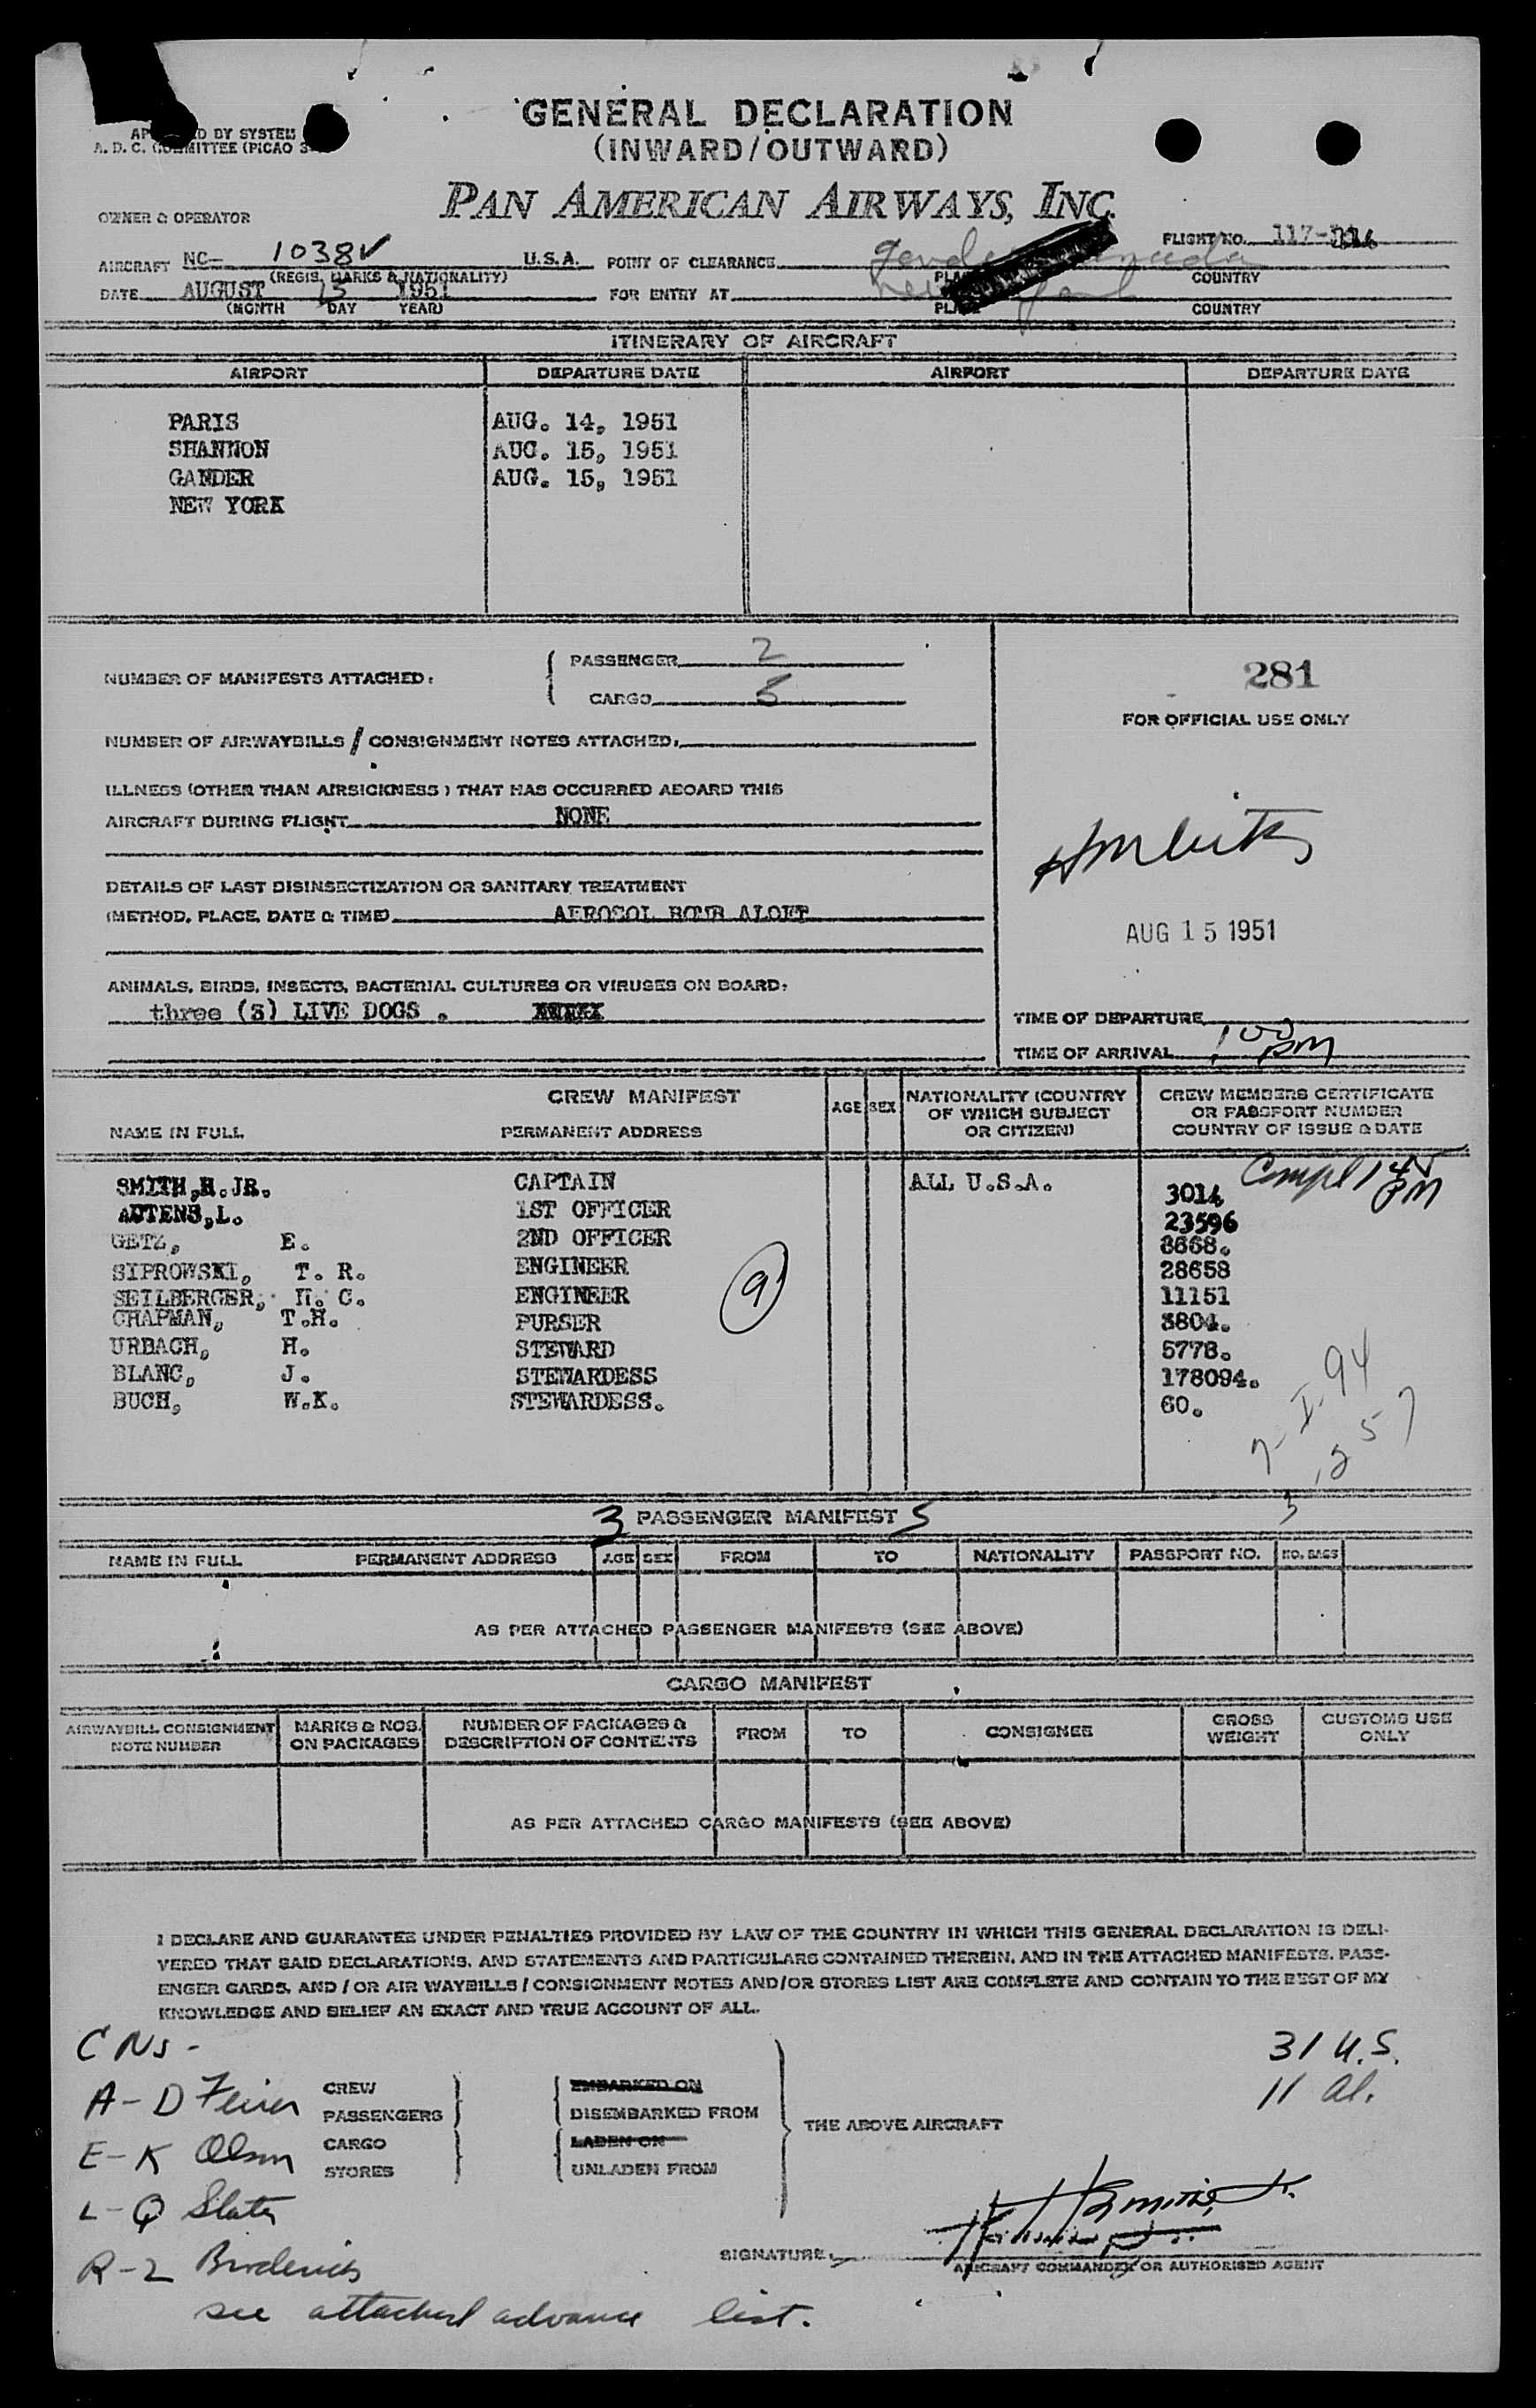 GENERAL DECLARATION
(INWARD/OUTWARD)
BY SYSTEM
A. D. C. COMMITTEE (PICAO
PAN AMERICAN AIRWAYS, INC.
OWNER & OPERATOR
FLIGHT NO. 117-
AIRCRAFT NC- 1038V U.S.A. POINT OF CLEARANCE Gander Canada
(REGIS. MARKS & NATIONALITY) PLACE COUNTRY
DATE AUGUST 15 1951 FOR ENTRY AT
(MONTH DAY YEAR) PLACE COUNTRY
ITINERARY OF AIRCRAFT
AIRPORT DEPARTURE DATE AIRPORT DEPARTURE DATE
PARIS AUG. 14, 1951
SHANNON AUG. 15, 1951
GANDER AUG. 15, 1951
NEW YORK
NUMBER OF MANIFESTS ATTACHED: PASSENGER 2
CARGO 5
281
FOR OFFICIAL USE ONLY
NUMBER OF AIRWAYBILLS / CONSIGNMENT NOTES ATTACHED:
ILLNESS (OTHER THAN AIRSICKNESS) THAT HAS OCCURRED ABOARD THIS
AIRCRAFT DURING FLIGHT NONE
DETAILS OF LAST DISINSECTIZATION OR SANITARY TREATMENT
(METHOD, PLACE, DATE & TIME) AEROSOL BOMB ALOFT
AUG 15 1951
ANIMALS, BIRDS, INSECTS, BACTERIAL CULTURES OR VIRUSES ON BOARD:
three (3) LIVE DOGS .
TIME OF DEPARTURE
TIME OF ARRIVAL 1 00 PM
CREW MANIFEST
NAME IN FULL PERMANENT ADDRESS AGE SEX NATIONALITY (COUNTRY OF WHICH SUBJECT OR CITIZEN) CREW MEMBERS CERTIFICATE OR PASSPORT NUMBER COUNTRY OF ISSUE & DATE
Compl 1 45 PM
SMITH,H.JR. CAPTAIN ALL U.S.A. 3014
AUTENS,L. 1ST OFFICER 23596
GETZ, E. 2ND OFFICER 8668.
SIPROWSKI, T. R. ENGINEER 28658
SEILBERGER, H. C. ENGINEER 11151
CHAPMAN, T.H. PURSER 3804.
URBACH, H. STEWARD 5778.
BLANC, J. STEWARDESS 178094.
BUCH, W.K. STEWARDESS. 60.
9
3 PASSENGER MANIFEST 5
NAME IN FULL PERMANENT ADDRESS AGE SEX FROM TO NATIONALITY PASSPORT NO. NO. BAGS
AS PER ATTACHED PASSENGER MANIFESTS (SEE ABOVE)
CARGO MANIFEST
AIRWAYBILL CONSIGNMENT NOTE NUMBER MARKS & NOS. ON PACKAGES NUMBER OF PACKAGES & DESCRIPTION OF CONTENTS FROM TO CONSIGNEE GROSS WEIGHT CUSTOMS USE ONLY
AS PER ATTACHED CARGO MANIFESTS (SEE ABOVE)
I DECLARE AND GUARANTEE UNDER PENALTIES PROVIDED BY LAW OF THE COUNTRY IN WHICH THIS GENERAL DECLARATION IS DELI-
VERED THAT SAID DECLARATIONS, AND STATEMENTS AND PARTICULARS CONTAINED THEREIN, AND IN THE ATTACHED MANIFESTS, PASS-
ENGER CARDS, AND / OR AIR WAYBILLS / CONSIGNMENT NOTES AND/OR STORES LIST ARE COMPLETE AND CONTAIN TO THE BEST OF MY
KNOWLEDGE AND BELIEF AN EXACT AND TRUE ACCOUNT OF ALL.
CNs -
31 U.S.
11 al.
A-D
CREW EMBARKED ON
PASSENGERS DISEMBARKED FROM THE ABOVE AIRCRAFT
E-K Olson
CARGO LADEN ON
STORES UNLADEN FROM
L-Q Slater
SIGNATURE H Smith Jr.
AIRCRAFT COMMANDER OR AUTHORISED AGENT
R-Z Broderick
see attached advance list.